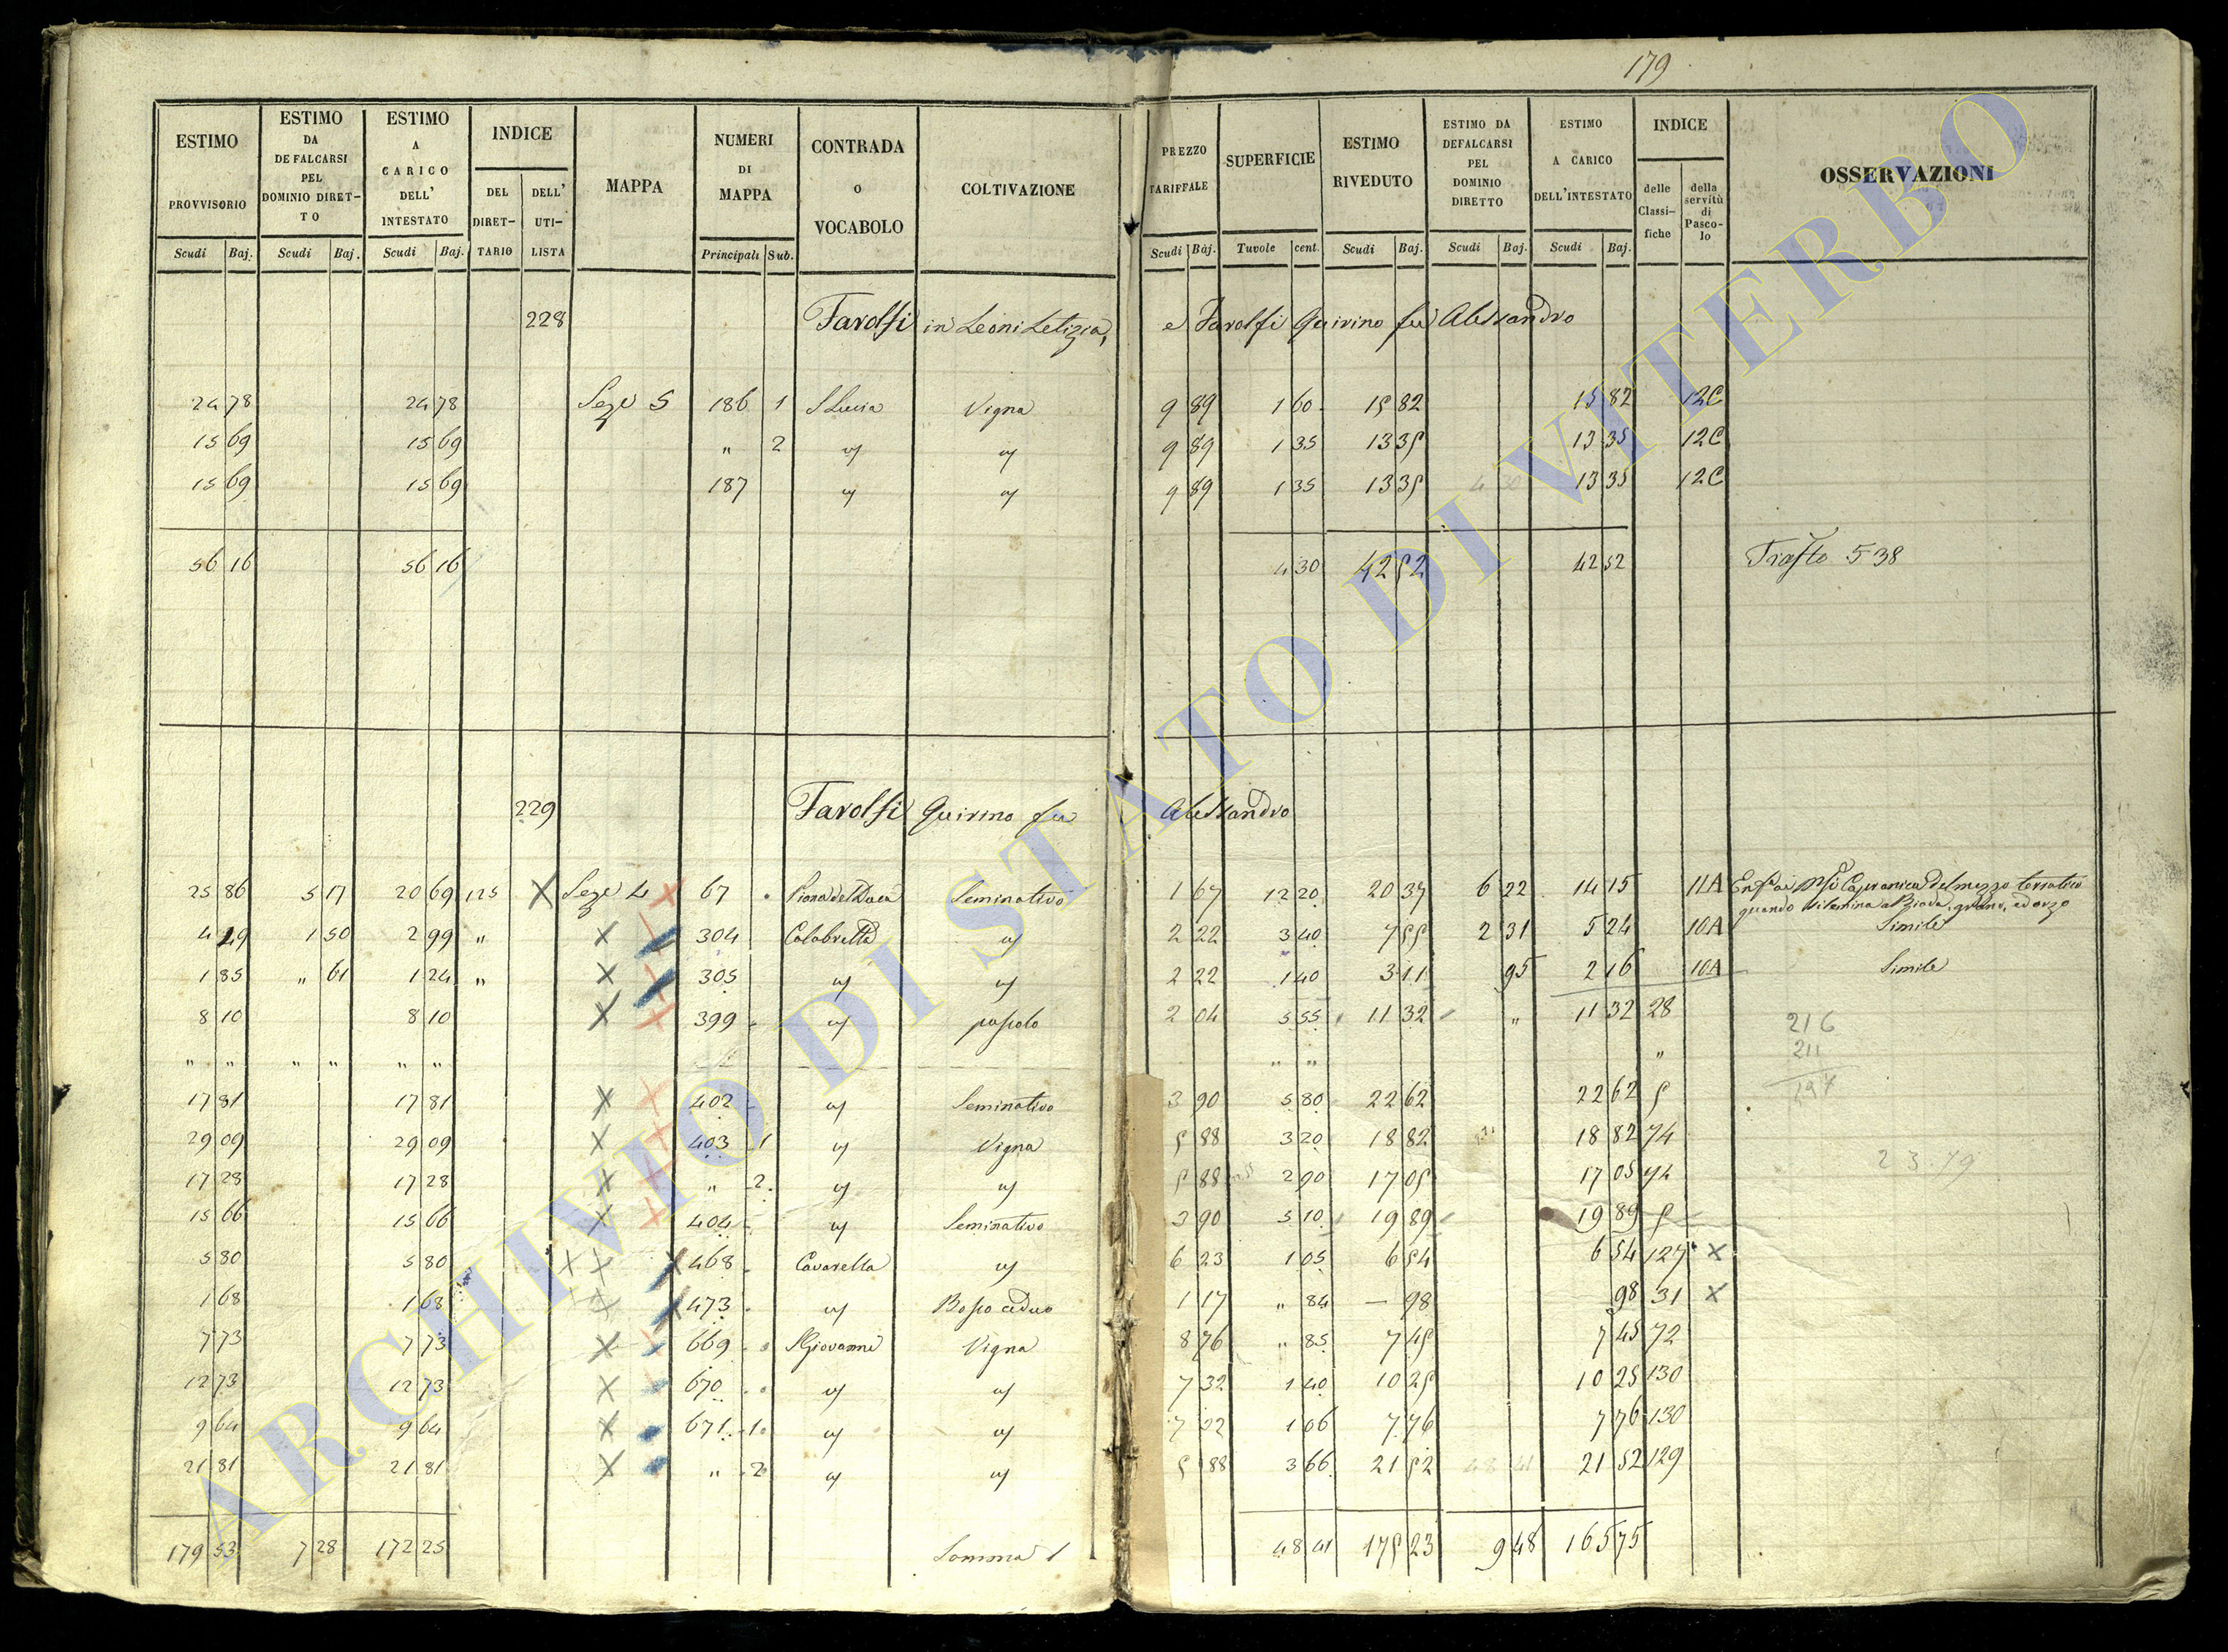 179
ESTIMO PROVVISORIO Scudi Baj. ESTIMO DA DEFALCARSI PEL DOMINIO DIRETTO Scudi Baj. ESTIMO A CARICO DELL' INTESTATO Scudi Baj. INDICE DEL DIRETTARIO DELL' UTILISTA MAPPA NUMERI DI MAPPA Principali Sub. CONTRADA o VOCABOLO COLTIVAZIONE PREZZO TARIFFALE Scudi Baj. SUPERFICIE Tavole cent. ESTIMO RIVEDUTO Scudi Baj. ESTIMO DA DEFALCARSI PEL DOMINIO DIRETTO Scudi Baj. ESTIMO A CARICO DELL'INTESTATO Scudi Baj. INDICE delle Classifiche della servitù di Pascolo OSSERVAZIONI
228 Farolfi in Leoni Letizia, e Farolfi Quirino fu Alessandro
24 78 24 78 Seze 5 186 1 S Lucia Vigna 9 89 1 60 15 82 15 82 12C
15 69 15 69 " 2 " " 9 89 1 35 13 35 13 35 12C
15 69 15 69 187 " " 9 89 1 35 13 35 13 35 12C
56 16 56 16 4 30 42 52 42 52 Trasto 538
229 Farolfi Quirino fu Alessandro
25 86 5 17 20 69 125 X Seze 4 X 67 Piana del Duca Seminativo 1 67 12 20 20 37 6 22 14 15 11A Capranica del mezzo terratico
quando si semina a Biada, grano, ed orzo
4 49 1 50 2 99 " X 304 Calabretta " 2 22 3 40 7 55 2 31 5 24 10A Simile
1 85 " 61 1 24 " X 305 " " 2 22 1 40 3 11 95 2 16 10A Simile
8 10 8 10 X X 399 " pascolo 2 04 5 55 11 32 " 11 32 28
216
211
" " " " " " " " "
17 81 17 81 X X 402 " Seminativo 3 90 5 80 22 62 22 62 5
29 09 29 09 X X 403 1 " Vigna 5 88 3 20 18 82 18 82 74
17 28 17 28 X X " 2 " " 5 88 2 90 17 05 17 05 74
23.79
15 66 15 66 X X 404 " Seminativo 3 90 5 10 19 89 19 89 5
5 80 5 80 X X X 468 Cavarella " 6 23 1 05 6 54 6 54 127 X
1 68 1 68 X X 473 " Bosco ceduo 1 17 " 84 — 98 98 31 X
7 73 7 73 X X 669 S Giovanni Vigna 8 76 " 85 7 45 7 45 72
12 73 12 73 X 670 " " 7 32 1 40 10 25 10 25 130
9 64 9 64 X 671 1 " " 7 32 1 06 7 76 7 76 130
21 81 21 81 X " 2 " " 5 88 3 66 21 52 48 41 21 52 129
179 53 7 28 172 25 Somma 1 48 41 175 23 9 48 165 75
ARCHIVIO DI STATO DI VITERBO